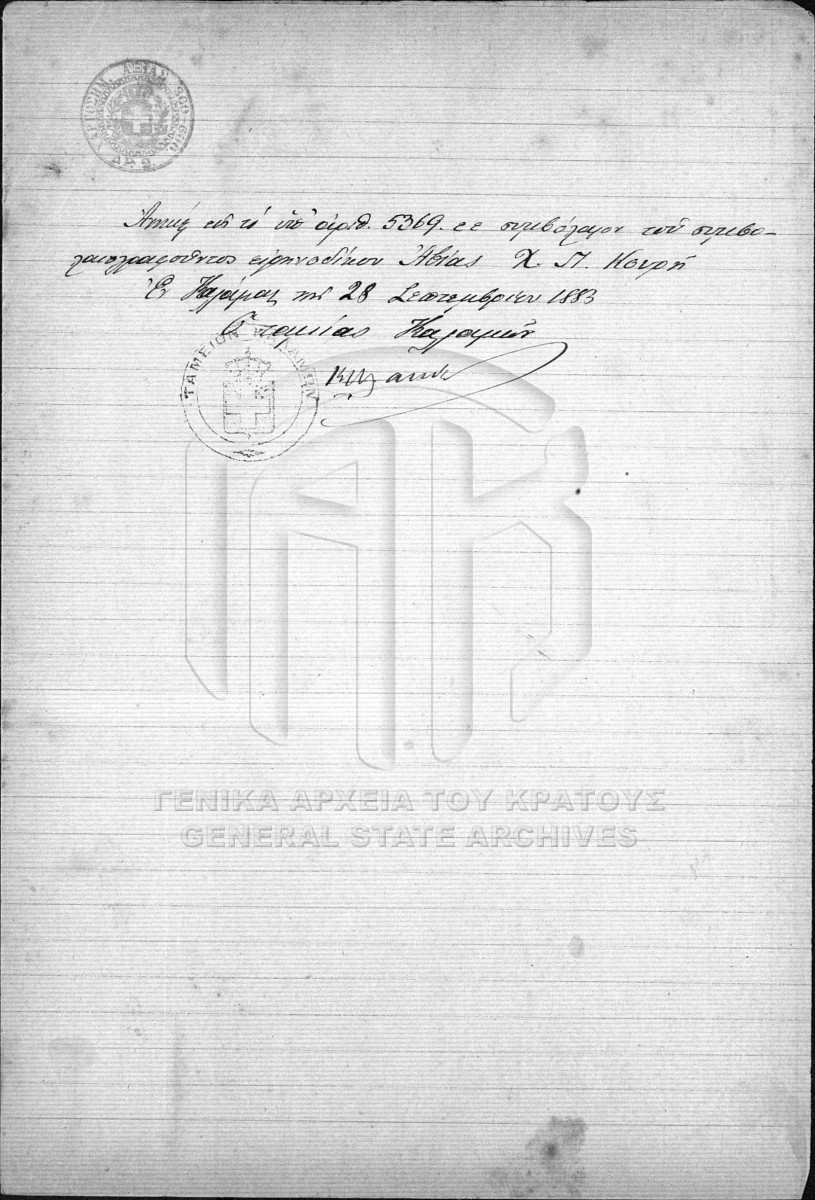 ΧΑΡΤΟΣΗΜ. ΑΞΙΑΣ
Ἀνήκει εἰς τό ὑπ' ἀριθ. 5369. συμβόλαιον τοῦ συμβο-
λαιογραφοῦντος εἰρηνοδίκου Ἀβίας Χ. Π. Κουρῆ
Ἐν Καλάμαις τῇ 28 Σεπτεμβρίου 1883
Ὁ ταμίας Καλαμῶν
ΤΑΜΕΙΟΝ ΚΑΛΑΜΩΝ
ΓΕΝΙΚΑ ΑΡΧΕΙΑ ΤΟΥ ΚΡΑΤΟΥΣ
GENERAL STATE ARCHIVES